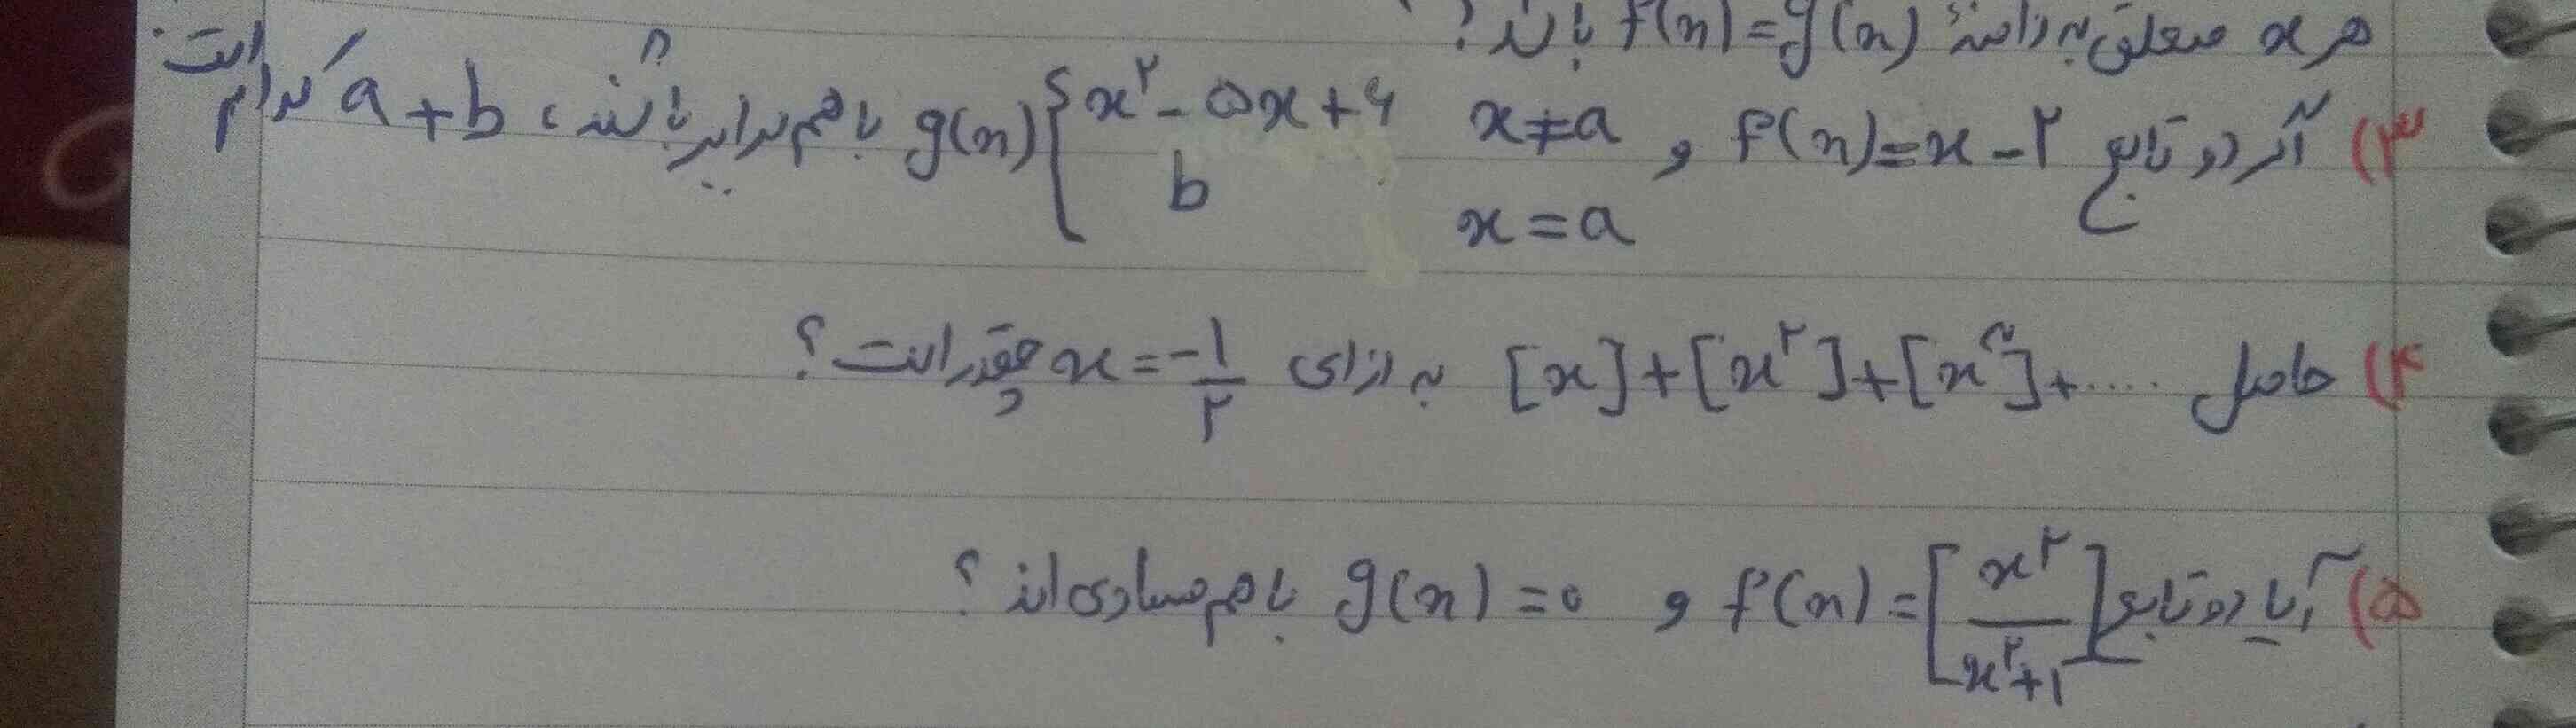 هر x متعلق به دامنه f(x)=g(x) باشد؟
۳) اگر دو تابع f(x)=x-۲ و g(x){x۲-۵x+۶ x≠a با هم برابر باشند، a+b کدام است.
b x=a
۴) حاصل [x]+[x۲]+[x۳]+..... به ازای x=-۱/۲ چقدر است؟
۵) آیا دو تابع f(x)=[x۲/x۲+۱] و g(x)=۰ با هم مساوی‌اند؟